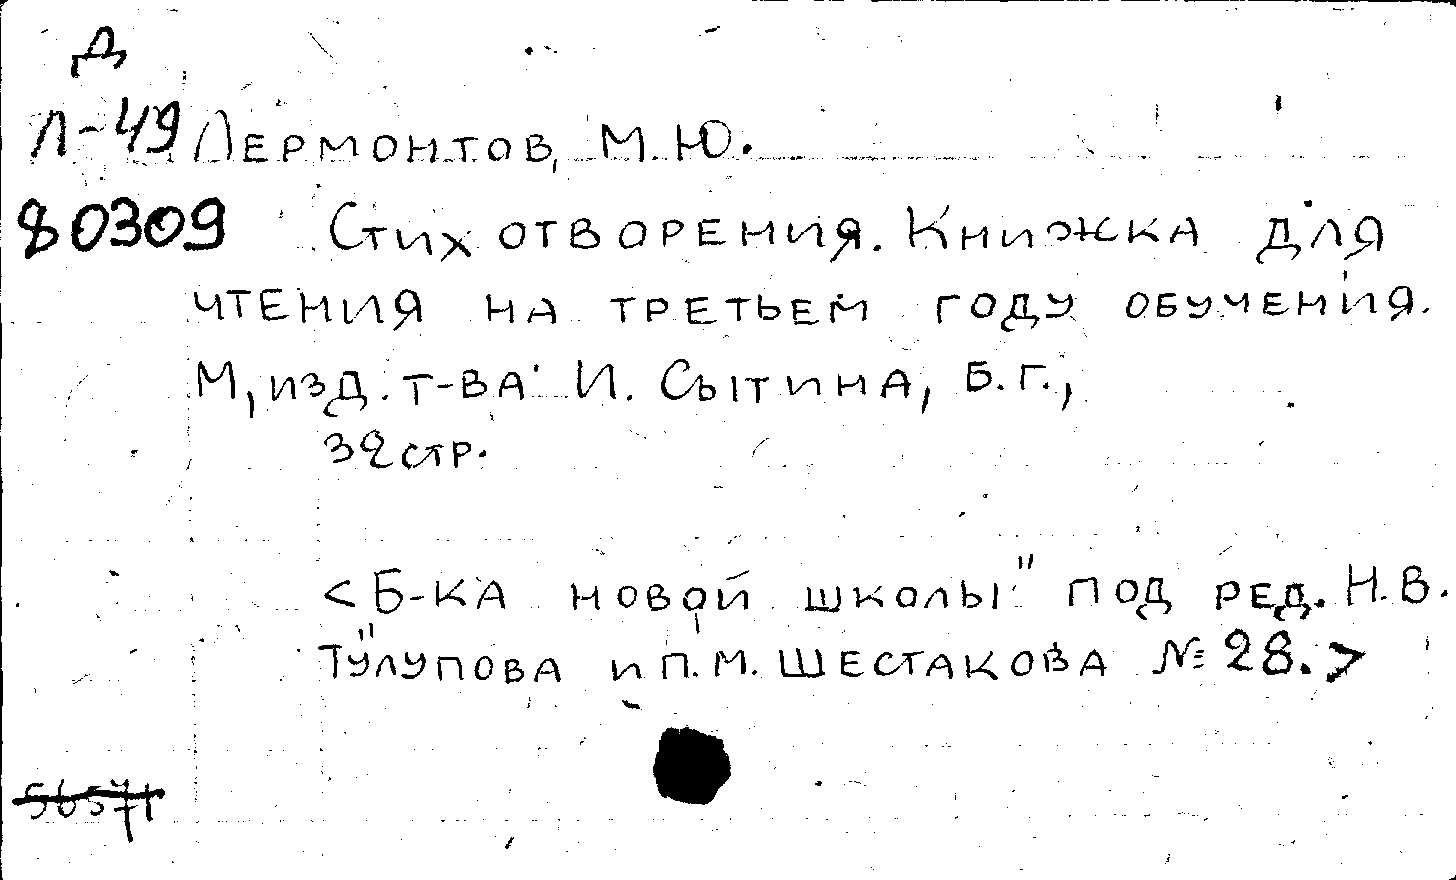 Д
Л-49 Лермонтов, М.Ю.
80309 Стихотворения. Книжка для
чтения на третьем году обучения.
М, изд. т-ва И. Сытина, Б.г.,
32 стр.
<Б-ка новой школы" под ред. Н.В.
Тулупова и П.М. Шестакова № 28.>
56571